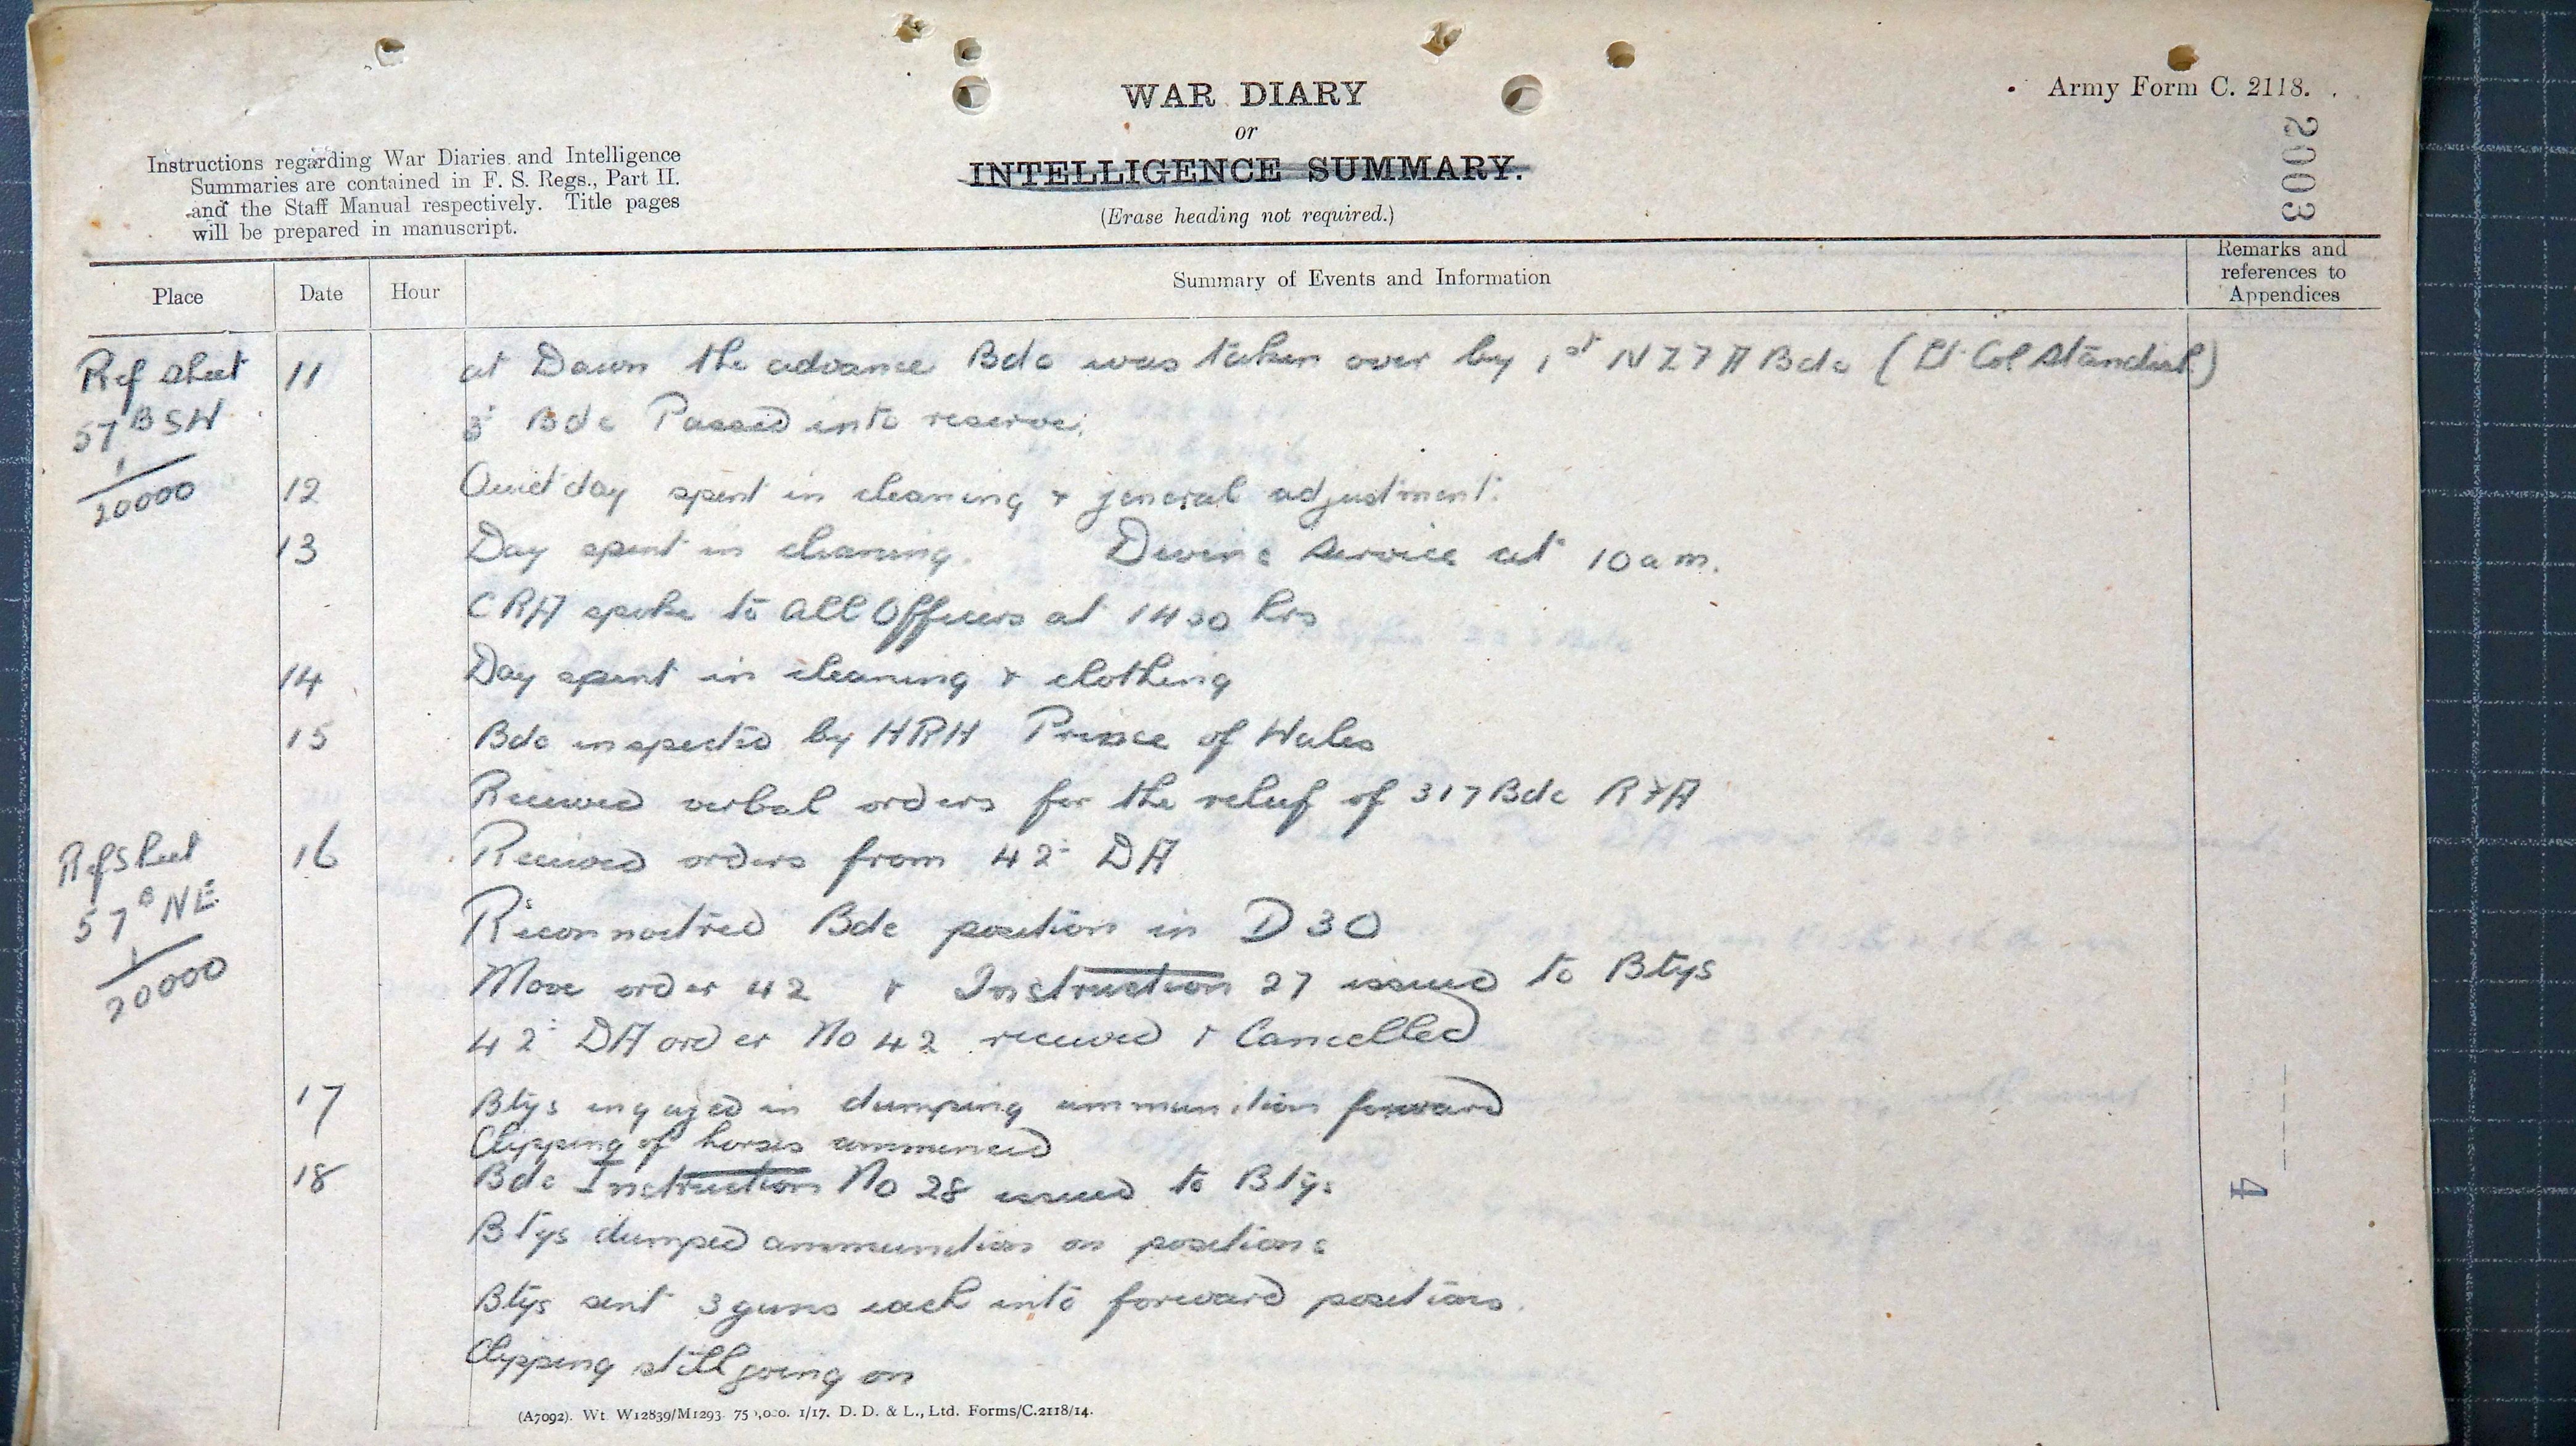 WAR DIARY
or
INTELLIGENCE SUMMARY.
(Erase heading not required.)
Army Form C. 2118.
2003
Instructions regarding War Diaries and Intelligence
Summaries are contained in F. S. Regs., Part II.
and the Staff Manual respectively. Title pages
will be prepared in manuscript.
Place Date Hour Summary of Events and Information Remarks and references to Appendices
Ref sheet 11 at Dawn the advance Bde was taken over by 1st NZFA Bde (Lt Col Standish)
57B SW 3: Bde Passed into reserve.
1/20000 12 Quiet day spent in cleaning & general adjustment.
13 Day spent in cleaning. Devine Service at 10 am.
CRA spoke to all Officers at 1430 hrs
14 Day spent in cleaning & clothing
15 Bde inspected by HRH Prince of Wales
Received verbal orders for the relief of 317 Bde RFA
Ref Sheet 16 Received orders from 42: DA
57B NE Reconnoitred Bde position in D30
1/20000 Move order 42 & Instruction 27 issued to Btys
42: DA order No 42 received & Cancelled
17 Btys engaged in dumping ammunition forward
Clipping of horses commenced
18 Bde Instruction No 28 issued to Btys
Btys dumped ammunition on positions
Btys sent 3 guns each into forward positions.
Clipping still going on
4
(A7092). Wt W12839/M1293. 750,000. 1/17. D. D. & L., Ltd. Forms/C.2118/14.